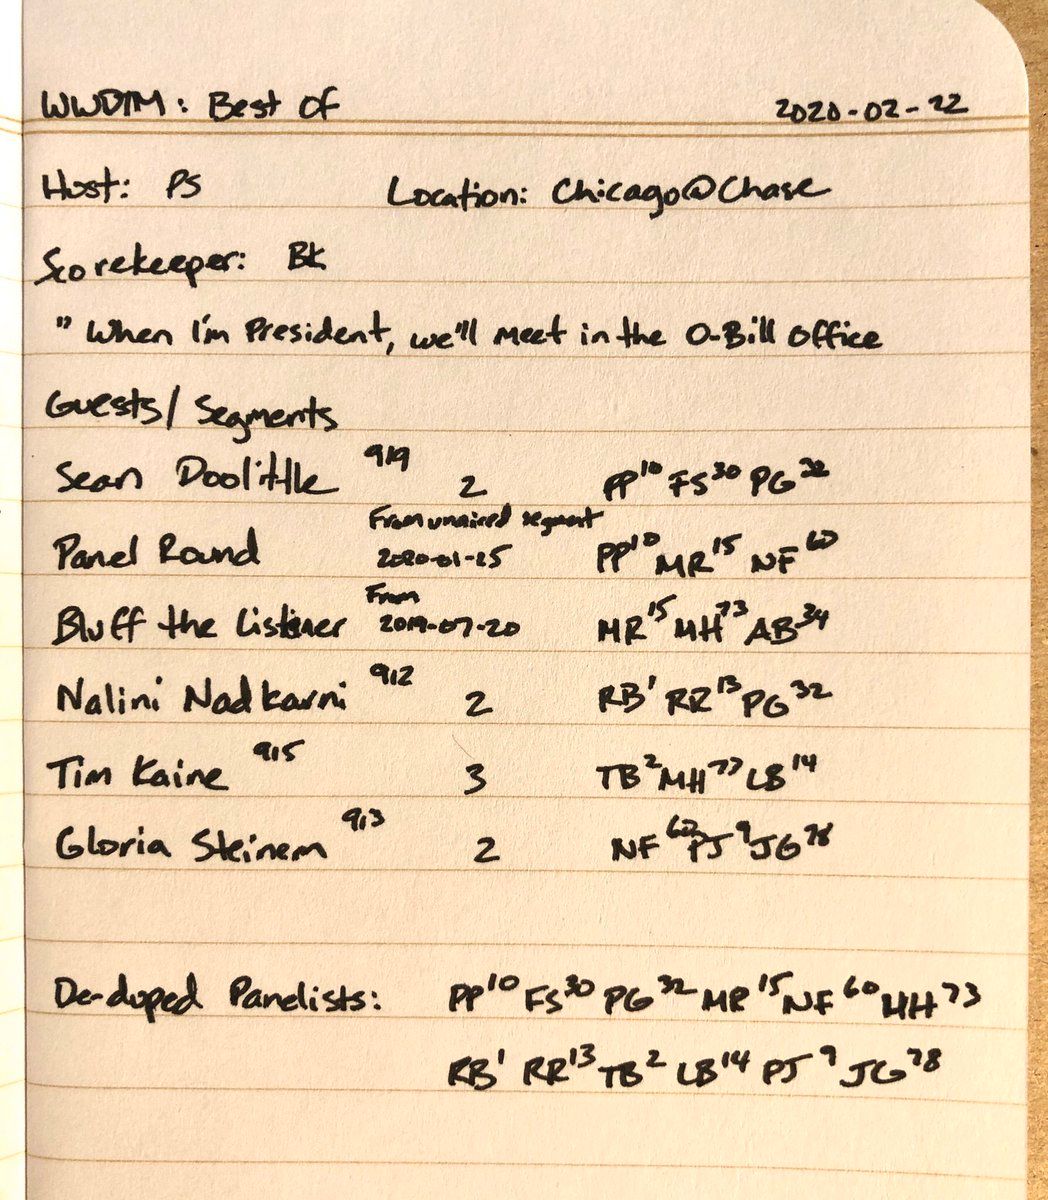 WWDTM: Best Of 2020-02-22
Host: PS Location: Chicago@Chase
Scorekeeper: BK
" When I'm President, we'll meet in the O-Bill Office
Guests/Segments
Sean Doolittle 919 2 PP10 FS30 PG32
Panel Round From unaired segment 2020-01-25 PP10 MR15 NF60
Bluff the Listener From 2019-07-20 MR15 MH73 AB34
Nalini Nadkarni 912 2 RB1 RR13 PG32
Tim Kaine 915 3 TB2 MH73 LB14
Gloria Steinem 913 2 NF60 PJ9 JG78
De-duped Panelists: PP10 FS30 PG32 MR15 NF60 MH73
RB1 RR13 TB2 LB14 PJ9 JG78